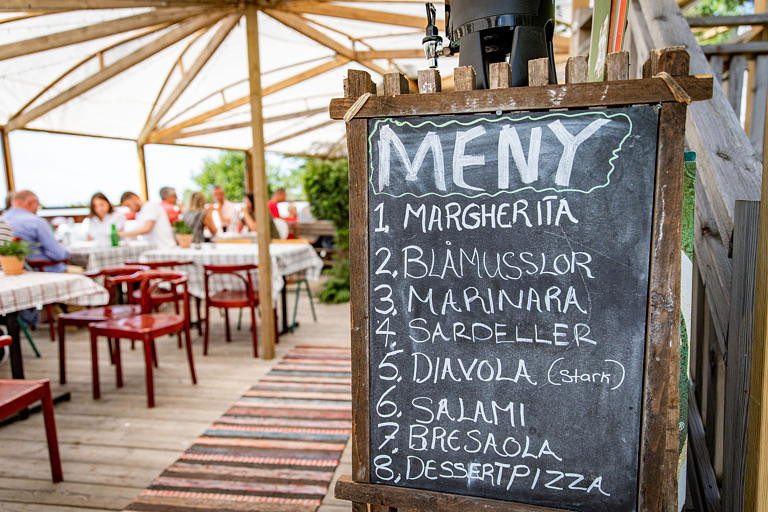 MENY
1. MARGHERITA
2. BLÅMUSSLOR
3. MARINARA
4. SARDELLER
5. DIAVOLA (stark)
6. SALAMI
7. BRESAOLA
8. DESSERTPIZZA